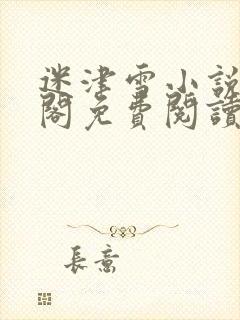 迷津雪小說
閣免費閱讀
長意